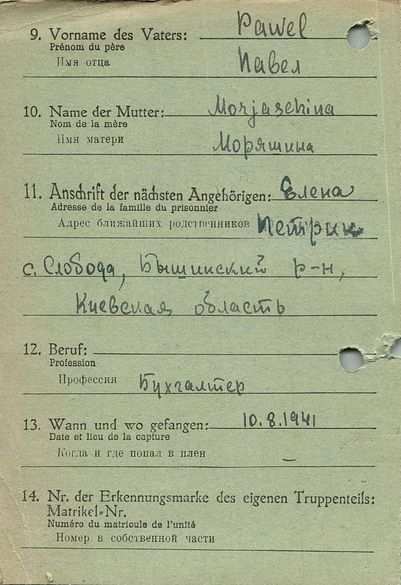 9. Vorname des Vaters: Pawel
Prénom du père
Имя отца Павел
10. Name der Mutter: Morjaschina
Nom de la mère
Имя матери Моряшина
11. Anschrift der nächsten Angehörigen: Елена
Adresse de la famille du prisonnier
Адрес ближайших родственников Петрик
с. Слобода, Бышинский р-н,
Киевская область
12. Beruf:
Profession
Профессия Бухгалтер
13. Wann und wo gefangen: 10.8.1941
Date et lieu de la capture
Когда и где попал в плен –
14. Nr. der Erkennungsmarke des eigenen Truppenteils:
Matrikel-Nr.
Numéro du matricule de l'unité
Номер в собственной части